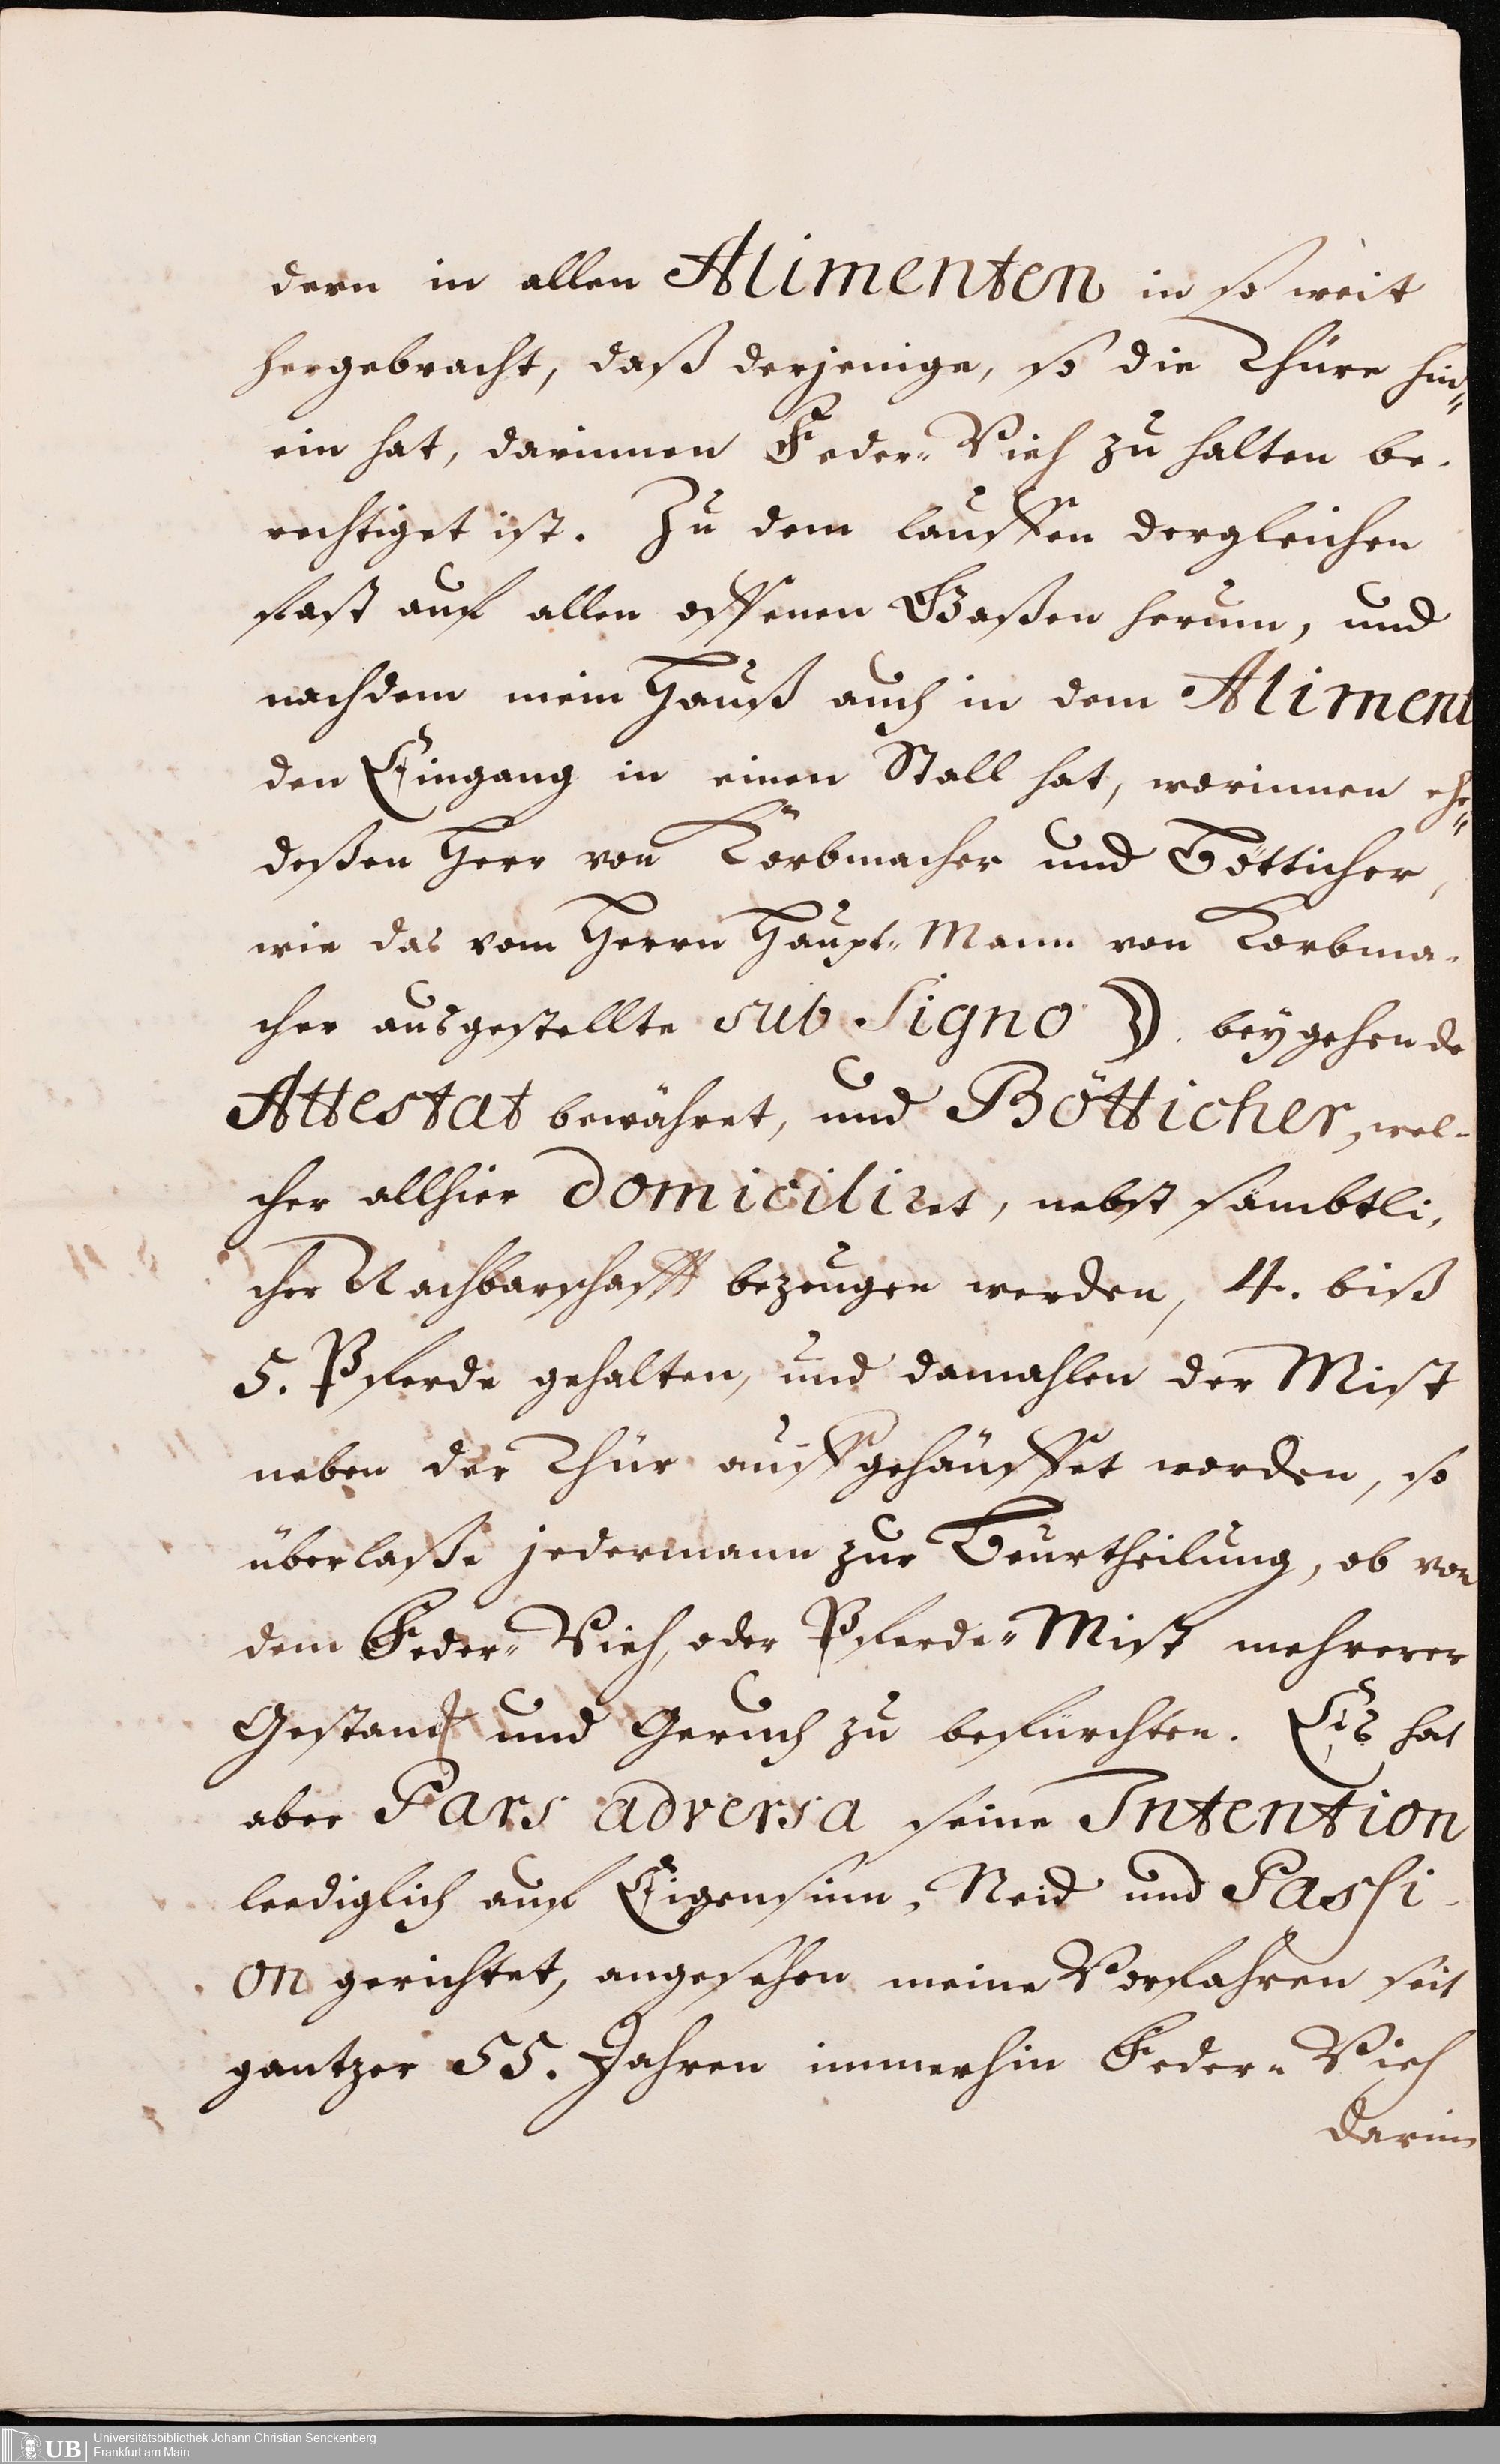 dern in allen Alimenten in so weit
hergebracht, daß derjenige, so die Thüre hin„
ein hat, darinnen Feder„ Vieh zu halten be„
rechtiget ist. Zu dem lauffen dergleichen
fast auf allen offenen Gaßen herum, und
nachdem mein Hauß auch in dem Aliment
den Eingang in einen Stall hat, worinnen ehe„
deßen Herr von Körbmacher und Bötticher,
wie das vom Herrn Haupt„ Mann von Korbma„
cher ausgestellte sub Signo ☽. beygehende
Attestat bewähret, und Bötticher, wel„
cher allhier domiciliret, nebst sämbtli„
cher Nachbarschafft bezeugen werden, 4. biß
5. Pferde gehalten, und damahlen der Mist
neben der Thür auffgehäuffet worden, so
überlaße jedermann zur Beurtheilung, ob von
dem Feder„ Vieh, oder Pferde„ Mist mehrerer
Gestanck und Geruch zu befürchten. Es hat
aber Pars adversa seine Intention
leediglich auf Eigensinn, Neid und Passi„
on gerichtet, angesehen meine Vorfahren seit
gantzer 55. Jahren immerhin Feder„ Vieh
darin„
Universitätsbibliothek Johann Christian Senckenberg
Frankfurt am Main
UB